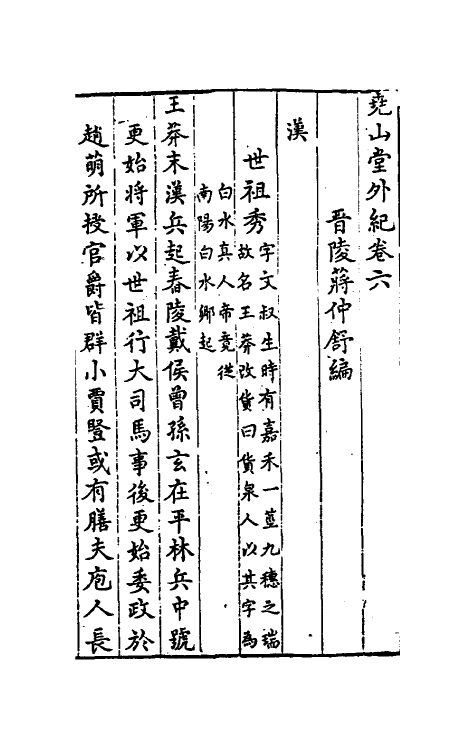 堯山堂外紀卷六
晉陵蔣仲舒編
漢
世祖秀字文叔生時有嘉禾一莖九穗之瑞
故名王莽改貨曰貨泉人以其字為
白水真人帝竟從
南陽白水鄉起
王莽末漢兵起舂陵戴侯曾孫玄在平林兵中號
更始將軍以世祖行大司馬事後更始委政於
趙萌所授官爵皆群小賈豎或有膳夫庖人長